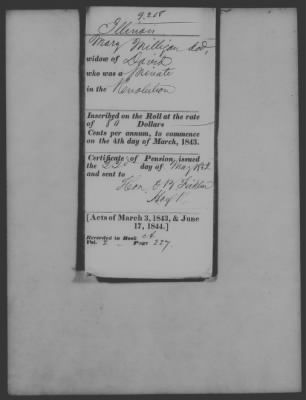 9.258
Illinois
Mary Milligan dec'd,
widow of David
who was a Private
in the Revolution
Inscribed on the Roll at the rate
of 80 Dollars
Cents per annum, to commence
on the 4th day of March, 1843.
Certificate of Pension issued
the day of May
and sent to
Hon. O. B. Ficklin
[Acts of March 3, 1843, & June
17, 1844.]
Recorded in Book A
Vol. 2 Page 227